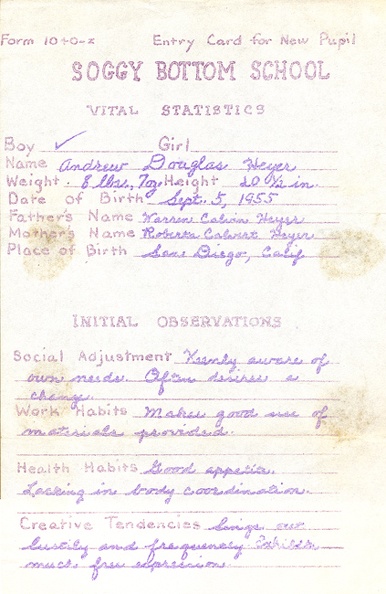 Form 1040-x Entry Card for New Pupil
SOGGY BOTTOM SCHOOL
VITAL STATISTICS
Boy ✓ Girl
Name Andrew Douglas Heyer
Weight 8 lbs., 7oz. Height 20 ½ in.
Date of Birth Sept. 5, 1955
Father's Name Warren Calvin Heyer
Mother's Name Roberta Calvert Heyer
Place of Birth San Diego, Calif
INITIAL OBSERVATIONS
Social Adjustment Keenly aware of
own needs. Often desires a
change.
Work Habits Makes good use of
materials provided.
Health Habits Good appetite.
Lacking in body coordination.
Creative Tendencies Sings out
lustily and frequently. Exhibits
much free expression.